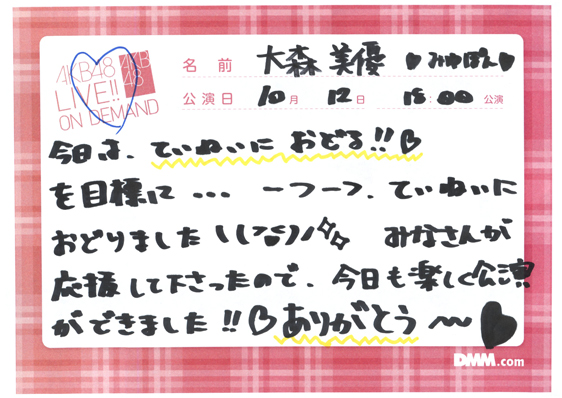 AKB48
LIVE!!
ON DEMAND
AKB
48
名前 大森美優 ♥みゆぽん♥
公演日 10月 12日 18:00 公演
今日は、ていねいに おどる!!♡
を目標に … 一つ一つ、ていねいに
おどりました \(^ε^)/ みなさんが
応援して下さったので、今日も楽しく公演
ができました!!♡ありがとう〜♥
DMM.com